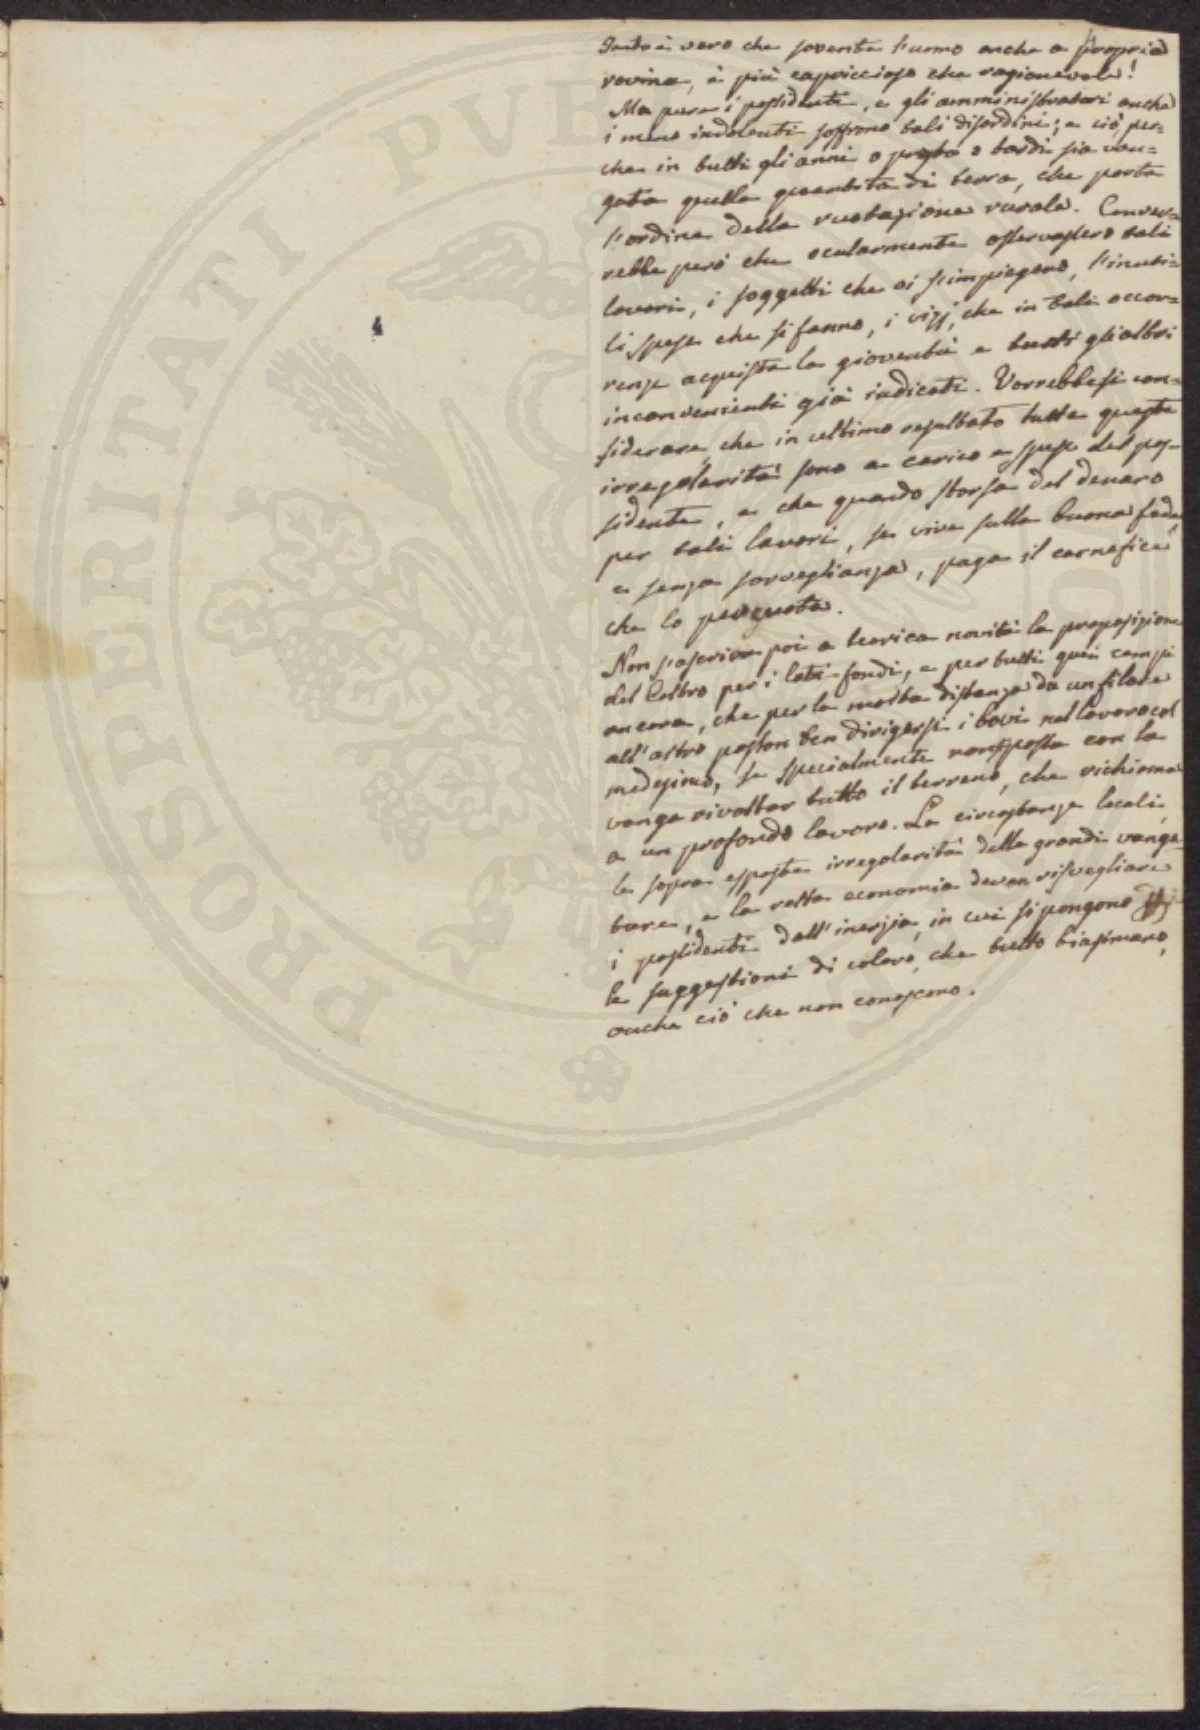 Tanto è vero che sovente l'uomo anche a propria
rovina, è più capriccioso che ragionevole!
Ma pure i possidenti, e gli amministratori anche
i meno indolenti soffrono tali disordini; e ciò, per=
che in tutti gli anni o presto o tardi sia van=
gata quella quantità di terra, che porta
l'ordine della ruotazione rurale. Conver=
rebbe però che ocularmente osservassero tali
lavori, i soggetti che vi s'impiegano, l'inuti=
li spese che si fanno, i vizj, che in tali occor=
renze acquista la gioventù e tutti gli altri
inconvenienti già indicati. Vorrebbesi con=
siderare che in ultimo resultato tutte queste
irregolarità sono a carico e spese del pos=
sidente, e che quando sborsa del denaro
per tali lavori, se vive sulla buona fede
e senza sorveglianza, paga il carnefice
che lo percuote.
Non s'ascriva poi a teorica novità la proposizione
del Coltro per i lati-fondi, e per tutti quei campi
ancora, che per la molta distanza da un filare
all'altro posson ben dirigersi i bovi nel lavoro col
medesimo, se specialmente non si possa con la
vanga rivoltar tutto il terreno, che richiama
a un profondo lavoro. Le circostanze locali,
le sopra esposte irregolarità delle grandi vanga
ture, e la retta economia devon risvegliare
i possidenti dall'inerzia, in cui si pongono
le suggestioni di coloro, che tutto biasimano,
anche ciò che non conoscono.
PROSPERITATI PVB